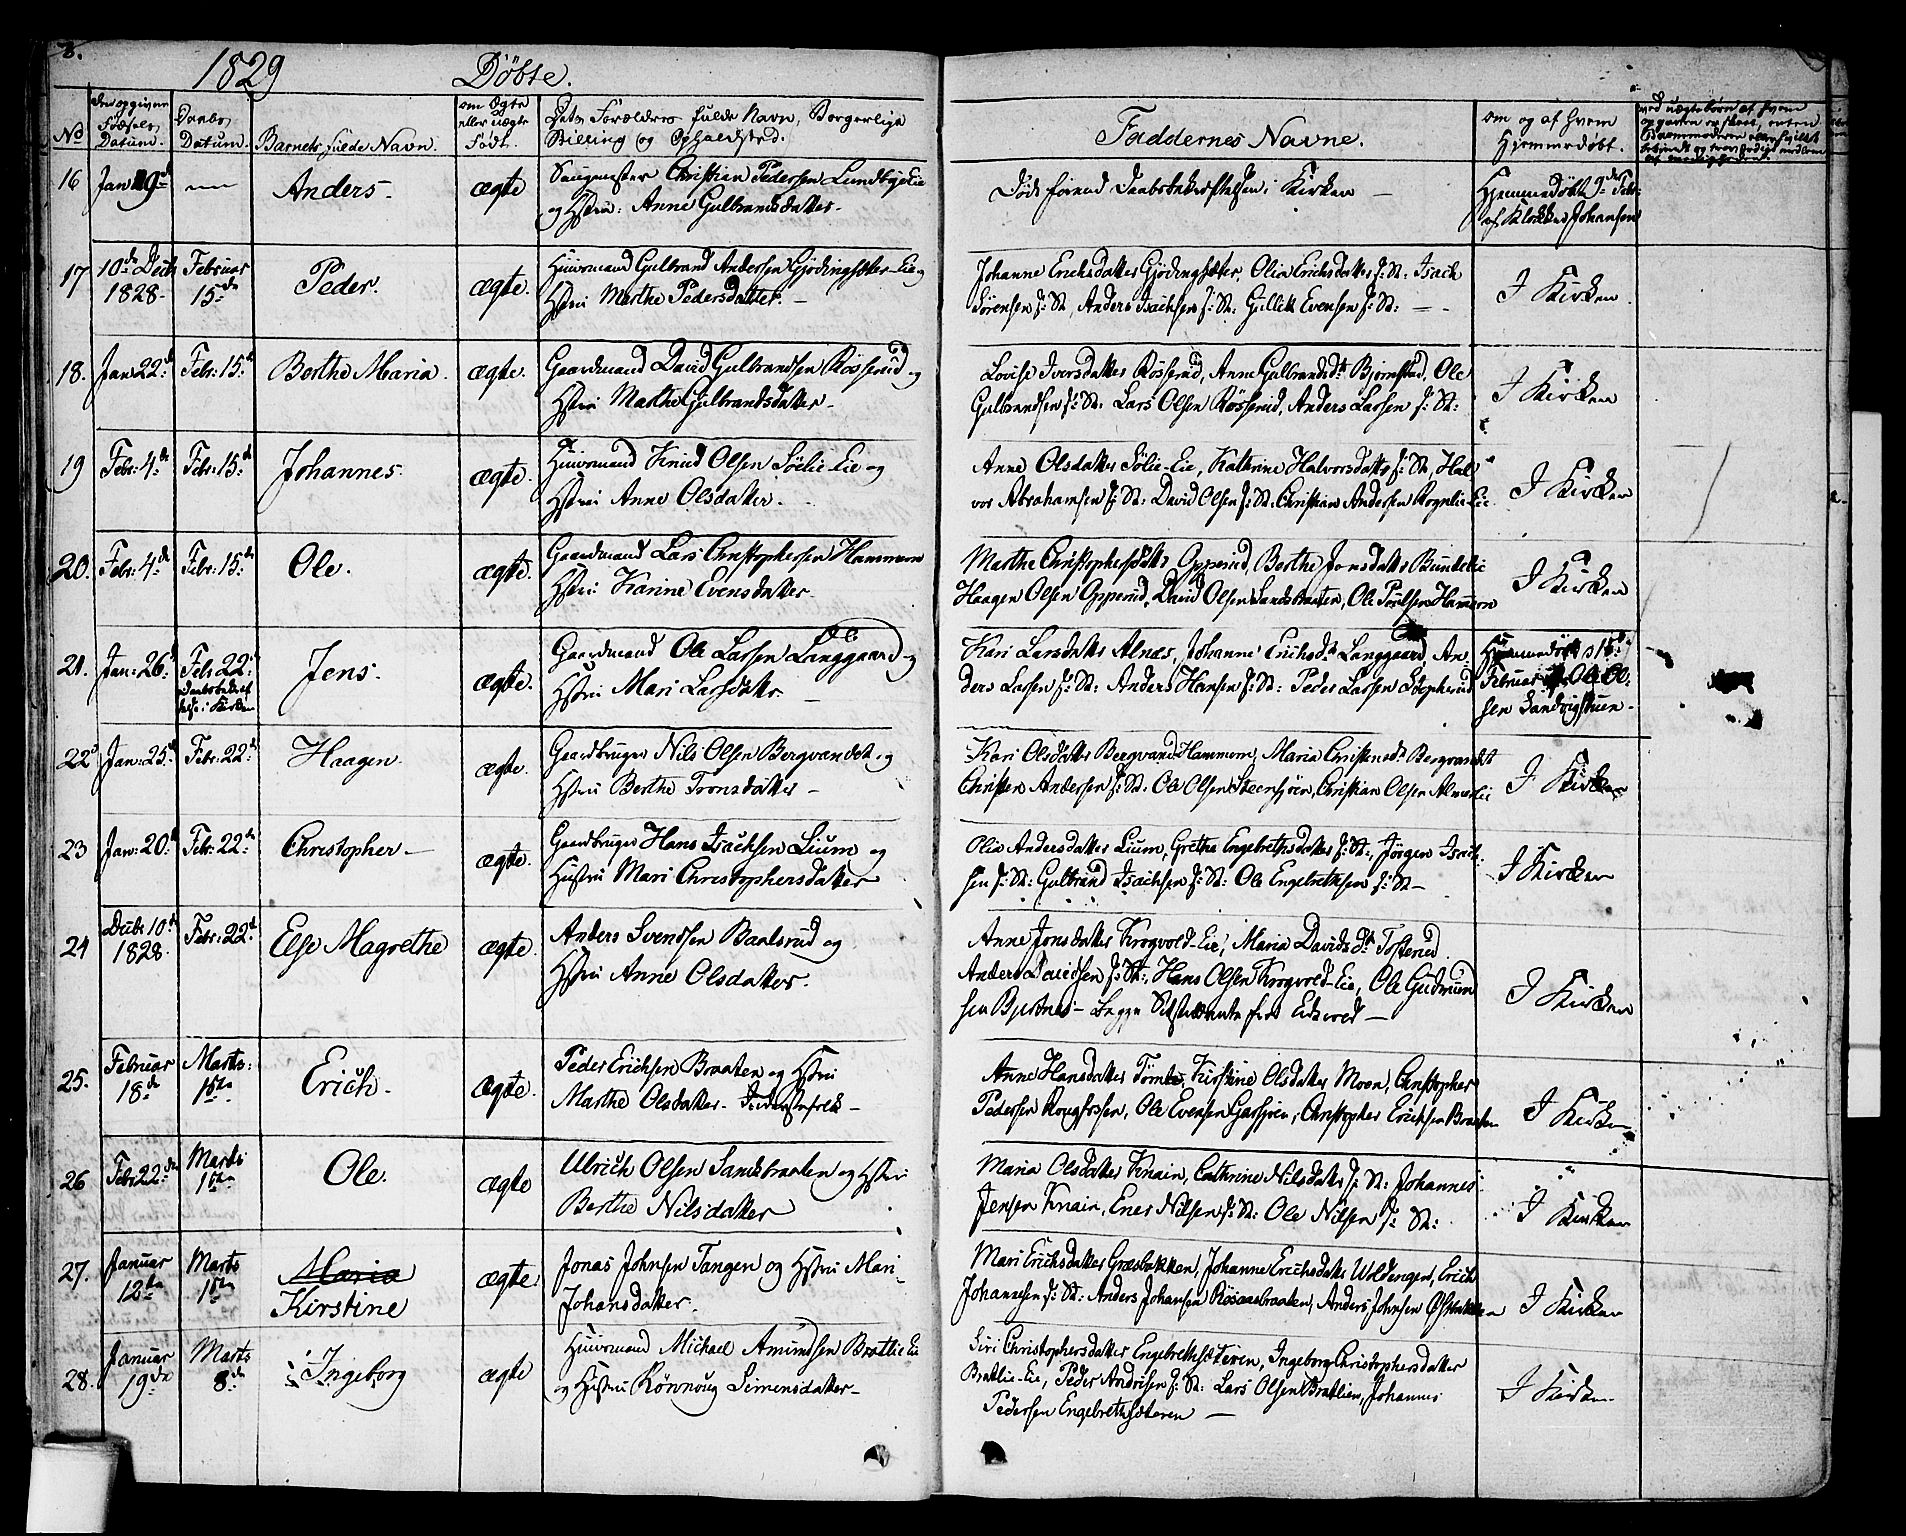 8.
1829 Döbte.
No
den opgivne Födsels Datum.
Daabs Datum.
Barnets fulde Navn.
om Ægte eller uægte Födt.
Dets Forældres fulde Navn, Borgerlige
Stilling og Opholdsted.
Faddernes Navne.
om og af hvem
Hjemmedöbt.
16 Jan 19d Anders. ægte
Christian Pedersen Lundbyeie
og Hstru: Anne Gulbrandsdatter.
Död forend Daabsbekræftelsen i Kirken
Hjemmedöbt 9de Febr:
af Klokker Johansen
17 10de Decb 1828. Februar 15de Peder. ægte.
Huusmand Gulbrand Andersen Gjödingsæter-Eie og
Hstru Marthe Pedersdatter.
Johanne Erichsdatter Gjödingsæter, Olia Erichsdatter f: St: Isach
Sörensen f: St, Anders Isachsen f: St: Gullik Evensen f: St:
I Kirken.
18. Jan: 22d Febr: 15de Berthe Maria. ægte.
Gaardmand David Gulbrandsen Rösserud og
Hstru Marthe Gulbrandsdatter.
Lovise Iversdatter Rösserud, Anne Gulbrandsdt Bjørnstad, Ole
Gulbrandsen f: St: Lars Olsen Rösserud, Anders Larsen f: St:
I Kirken
19 Febr: 4de Febr: 15de Johannes. ægte.
Huusmand Knud Olsen Sölie-Eie og
Hstru Anne Olsdatter.
Anne Olsdatter Sölie-Eie, Katerine Halvorsdatter f: St, Hal
vor Abrahamsen f: St: David Olsen f: St: Christian Andersen Rognlie-Eie
I Kirken
20. Febr: 4de Febr: 15de Ole. ægte.
Gaardmand Lars Christophersen Hammern
Hstru Karine Evensdatter.
Marthe Christophersdatter Opperud, Berthe Jonsdatter Bundelie
Haagen Olsen Opperud, David Olsen Sandsbraaten, Ole Poulsen Hammern
I Kirken
21. Jan: 26d Febr 22de Jens. ægte.
Gaardmand Ole Larsen Langgaard og
Hstru Mari Larsdatter
Kari Larsdatter Alnæs, Johanne Erichsdt Langgaard, An
ders Larsen f: St: Anders Hansen f: St: Peder Larsen
Hjemmedöbt
Februar af Ole Ol:
sen Sandvigstuen.
22 Jan: 25de Febr: 22de Haagen. ægte.
Gaardbruger Nils Olsen Bergvandet og
Hstru Berthe Tronsdatter
Kari Olsdatter Bergvand Hammern, Maria Christensdt Bergvandet
Christen Andersen f: St: Ole Olsen Steensjöen, Christian Olsen Almerlie
I Kirken
23 Jan: 20de Febr: 22de Christopher ægte.
Gaardbruger Hans Isachsen Lium og
Hustru Mari Christophersdatter
Olia Andersdatter Lium, Grethe Engebrethsdatter f: St:, Jörgen Isach:
sen f: St: Gulbrand Isachsen f: St: Ole Engebrethsen f: St
I Kirken
24 Decb: 10de 1828. Febr: 22de Else Magrethe ægte.
Anders Svendsen Baalsrud og
Hstru Anne Olsdatter.
Anne Jonsdatter Krogvold-Eie, Maria Davidsdt Tosterud
Anders Davidsen f: St:, Hans Olsen Krogvold-Eie, Ole Gudmund
sen Bjertnes
I Kirken
25. Februar 18de Marts: 1ste Erich. ægte.
Peder Erichsen Braaten og Hstru
Marthe Olsdatter.
Anne Hansdatter Tömte, Kirstine Olsdatter Moen, Christopher
Pedersen, Ole Evensen, Christopher Erichsen Braaten
I Kirken
26 Febr 22de Marts 1ste Ole. ægte
Ulrich Olsen Sandsbraaten og Hstru
Berthe Nilsdatter
Maria Olsdatter Knain, Cathrine Nilsdatter f: St: Johannes
Jensen Knain, Ener Nilsen f: St: Ole Nilsen f: St:
I Kirken
27. Januar 12te Marts 1ste Maria Kirstine ægte.
Jonas Johnsen Tangen og Hstru Mari
Johansdatter.
Mari Erichsdatter Græsbakken, Johanne Erichsdatter Woldengen, Erich
Johannsen f: St: Anders Johansen Rosaasbraaten, Anders Johnsen
I Kirken
28. Januar 19de Marts 8de Ingeborg ægte
Huusmand Michael Amundsen Bratlie Eie
og Hustru Rönnoug Simensdatter
Siri Christophersdatter Engebrethsæteren, Ingeborg Christophersdatter
Bratlie-Eie, Peder Andersen f: St: Lars Olsen Bratlien, Johannes
Pedersen Engebrethsæteren
I Kirken